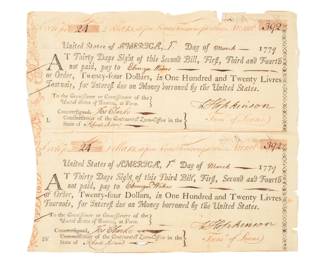 24 392
United States of AMERICA, 1st Day of March 1779
AT Thirty Days Sight of this Second Bill, First, Third and Fourth
not paid, pay to
or Order, Twenty-four Dollars, in One Hundred and Twenty Livres
Tournois, for Interest due on Money borrowed by the United States.
To the Commissioner or Commissioners of the
United States of America, at Paris.
Countersigned, Jos Clarke
Commissioner of the Continental Loan-Office in the
State of
F Hopkinson
Treasr of Loans
24 392
United States of AMERICA, 1st Day of March 1779
AT Thirty Days Sight of this Third Bill, First, Second and Fourth
not paid, pay to
or Order, Twenty-four Dollars, in One Hundred and Twenty Livres
Tournois, for Interest due on Money borrowed by the United States.
To the Commissioner or Commissioners of the
United States of America, at Paris.
Countersigned, Jos Clarke
Commissioner of the Continental Loan-Office in the
State of
F Hopkinson
Treasr of Loans